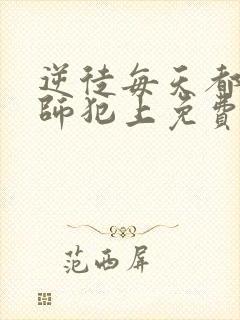 逆徒每天都
師犯上免費
范西屏